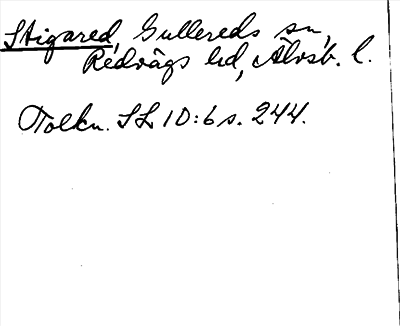 Stigared, Gullereds sn,
Redvägs hd, Älvsb. l.
Tolkn. SL 10:6 s. 244.